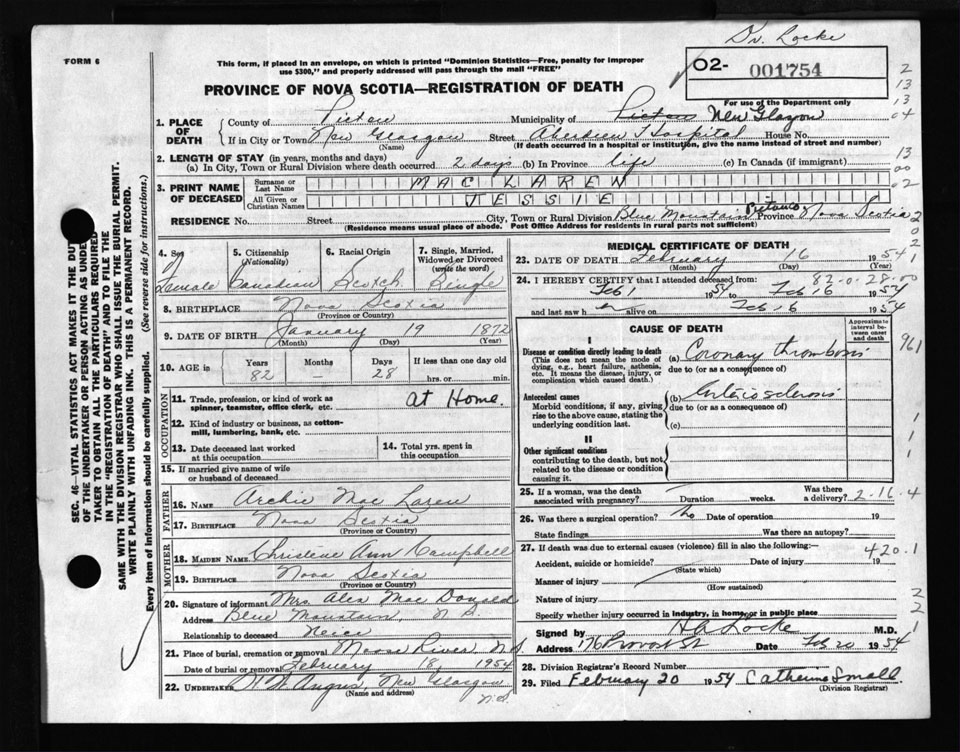 Dr. Locke
FORM 6
This form, if placed in an envelope, on which is printed "Dominion Statistics—Free, penalty for improper
use $300," and properly addressed will pass through the mail "FREE"
O2- 001754
For use of the Department only
PROVINCE OF NOVA SCOTIA—REGISTRATION OF DEATH
2
13
13
04
13
00
02
2
0
2
1
1. PLACE OF DEATH
County of Pictou Municipality of Pictou New Glasgow
If in City or Town New Glasgow Street Aberdeen Hospital House No.
(Name) (If death occurred in a hospital or institution, give the name instead of street and number)
2. LENGTH OF STAY (in years, months and days)
(a) In City, Town or Rural Division where death occurred 2 days (b) In Province life (c) In Canada (if immigrant)
3. PRINT NAME OF DECEASED
Surname or Last Name MAC LAREN
All Given or Christian Names JESSIE
RESIDENCE No. Street City, Town or Rural Division Blue Mountain Pictou Co Province Nova Scotia
(Residence means usual place of abode. Post Office Address for residents in rural parts not sufficient)
4. Sex
f
Female
5. Citizenship
(Nationality)
Canadian
6. Racial Origin
Scotch
7. Single, Married,
Widowed or Divorced
(write the word)
Single
8. BIRTHPLACE Nova Scotia
(Province or Country)
9. DATE OF BIRTH January 19 1872
(Month) (Day) (Year)
10. AGE in
Years 82
Months –
Days 28
If less than one day old
hrs. or min.
OCCUPATION
11. Trade, profession, or kind of work as
spinner, teamster, office clerk, etc. At Home
12. Kind of industry or business, as cotton-
mill, lumbering, bank, etc.
13. Date deceased last worked
at this occupation
14. Total yrs. spent in
this occupation
15. If married give name of wife
or husband of deceased
FATHER
16. NAME Archie Mac Laren
17. BIRTHPLACE Nova Scotia
(Province or Country)
MOTHER
18. MAIDEN NAME Christene Ann Campbell
19. BIRTHPLACE Nova Scotia
(Province or Country)
20. Signature of informant Mrs. Alex Mac Donald
Address Blue Mountain, N S
Relationship to deceased Neice
21. Place of burial, cremation or removal Moose River, N.S.
Date of burial or removal February 18, 1954
22. UNDERTAKER Angus, New Glasgow
(Name and address) N.S.
MEDICAL CERTIFICATE OF DEATH
23. DATE OF DEATH February 16 1954
(Month) (Day) (Year)
24. I HEREBY CERTIFY that I attended deceased from: 82-0-28-00
Feb 1 1954 to Feb 16 1954
and last saw h er alive on Feb 16 1954
CAUSE OF DEATH
Approximate
interval be-
tween onset
and death
961
I
Disease or condition directly leading to death
(This does not mean the mode of
dying, e.g., heart failure, asthenia,
etc. It means the disease, injury, or
complication which caused death.)
(a) Coronary thrombosis
due to (or as a consequence of)
Antecedent causes
Morbid conditions, if any, giving
rise to the above cause, stating the
underlying condition last.
(b) Arteriosclerosis
due to (or as a consequence of)
(c)
1
1
II
Other significant conditions
contributing to the death, but not
related to the disease or condition
causing it.
25. If a woman, was the death
associated with pregnancy? Duration weeks. Was there
a delivery? 2-16-4
26. Was there a surgical operation? No Date of operation 19
State findings Was there an autopsy?
27. If death was due to external causes (violence) fill in also the following:— 420.1
Accident, suicide or homicide? Date of injury 19
(State which)
Manner of injury
(How sustained)
Nature of injury
Specify whether injury occurred in industry, in home, or in public place
2
2
1
Signed by H A Locke M.D.
Address 176 Provost St Date Feb 20 1954
28. Division Registrar's Record Number
29. Filed February 20 1954 Catherine Small
(Division Registrar)
SEC. 46—VITAL STATISTICS ACT MAKES IT THE DUTY
OF THE UNDERTAKER OR PERSON ACTING AS UNDER-
TAKER TO OBTAIN ALL THE PARTICULARS REQUIRED
IN THE "REGISTRATION OF DEATH" AND TO FILE THE
SAME WITH THE DIVISION REGISTRAR WHO SHALL ISSUE THE BURIAL PERMIT.
WRITE PLAINLY WITH UNFADING INK. THIS IS A PERMANENT RECORD.
Every item of information should be carefully supplied. (See reverse side for instructions.)